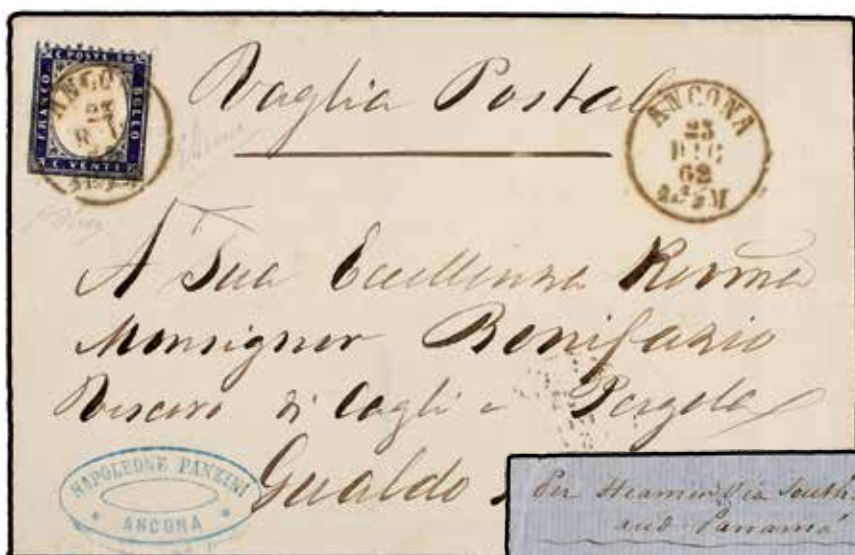 FRANCO
BOLLO
C. VENTI
ANCO
23
Vaglia Postal
ANCONA
23
DIC
62
A Sua Eccellenza Revma
Monsignor Bonifazio
Vescovo di Cagli e Pergola
Gualdo
NAPOLEONE PANZINI
* ANCONA *
Per Steamer Via South
and Panamá